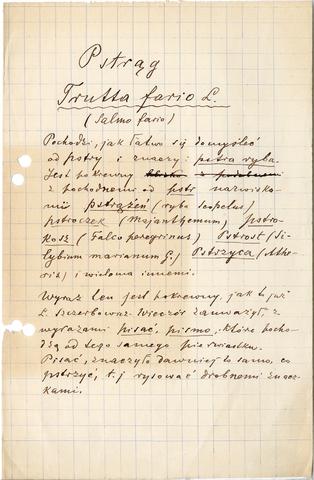 Pstrąg
Trutta fario L.
(Salmo fario)
Pochodzi, jak łatwo się domyśleć
od pstry i znaczy: pstra ryba.
Jest pokrewny
z pochodnemi od pstr nazwiska-
mi pstrążeń (ryba scopelus)
pstroczek (Majanthemum), pstro-
kosz (Falco peregrinus) Pstrost (Si-
lybium marianum G.) Pstrzyca (Athe-
rix) i wieloma innemi.
Wyraz ten jest pokrewny, jak to już
L. Szczerbowicz-Wieczór zauważył, z
wyrazami pisać, pismo, które pocho-
dzą od tego samego pierwiastku.
Pisać, znaczyło dawniej to samo, co
pstrzyć, t. j. rysować drobnemi znacz-
kami.